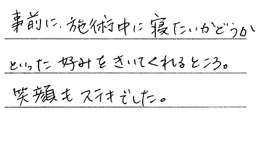 事前に、施術中に寝たいかどうか
といった好みをきいてくれるところ。
笑顔もステキでした。